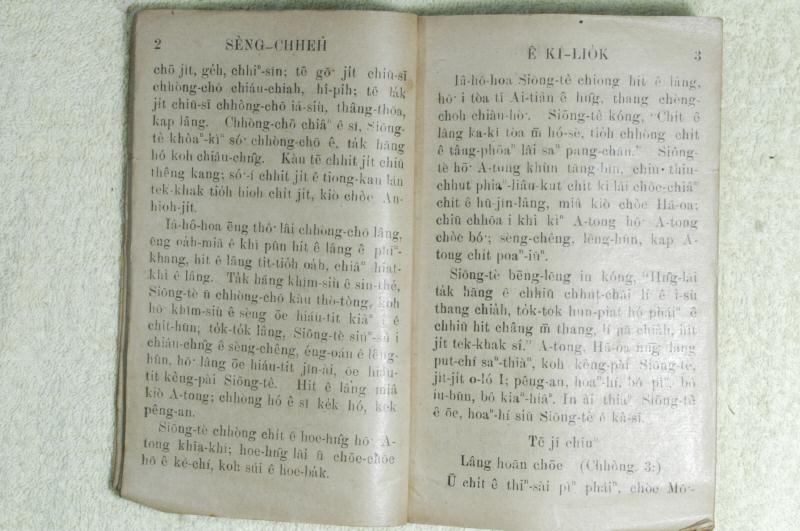 2 SÈNG-CHHEH
chō ji̍t, ge̍h, chhiⁿ-sin; tē gō͘ ji̍t chiū-sī
chhòng-chō chiáu-chiah, hî-pih; tē la̍k
ji̍t chiū-sī chhòng-chō iá-siù, thâng-thōa,
kap lâng. Chhòng-chō chiâⁿ ê sî, Siōng-
tè khòaⁿ-kìⁿ só͘ chhòng-chō ê, ta̍k hāng
hó koh chiâu-chn̂g. Kàu tē chhit ji̍t chiū
thêng kang; só͘-í chhit ji̍t ê tiong-kan lán
tek-khak tio̍h hioh chi̍t ji̍t, kiò chòe An-
hioh-ji̍t.
Iâ-hô-hoa ēng thô͘ lâi chhòng-chō lâng,
ēng oa̍h-miā ê khì pûn hit ê lâng ê phīⁿ-
khang, hit ê lâng tit-tio̍h oa̍h, chiâⁿ hiat-
khì ê lâng. Ta̍k hāng khîm-siù ê sin-thé,
Siōng-tè ū chhòng-chō kàu thò-tòng, koh
hō͘ khîm-siù ê sèng ōe hiáu-tit kiâⁿ i ê
chit-hūn; to̍k-to̍k lâng, Siōng-tè siúⁿ-sù i
chiâu-chn̂g ê sèng-chêng, éng-oán ê lêng-
hûn, hō͘ lâng ōe hiáu-tit jîn-ài, ōe hiáu-
tit kèng-pài Siōng-tè. Hit ê lâng miâ
kiò A-tong; chhòng hó ê sî ke̍k hó, ke̍k
pêng-an.
Siōng-tè chhòng chi̍t ê hoe-hn̂g hō͘ A-
tong khiā-khí; hoe-hn̂g lāi ū chōe-chōe
hō ê ké-chí, koh súi ê hoe-ba̍k.
Ê KÌ-LIO̍K 3
Iâ-hô-hoa Siōng-tè chiong hit ê lâng,
hō͘ i tòa tī Ai-tiân ê hn̂g, thang chèng-
choh chiàu-hò͘. Siōng-tè kóng, "Chit ê
lâng ka-kī tòa m̄ hó-sè, tio̍h chhòng chi̍t
ê tâng-phōaⁿ lâi saⁿ pang-chān." Siōng-
tè hō͘ A-tong khùn tâng-bîn, chiū thiu-
chhut phiaⁿ-liâu-kut chi̍t ki lâi chòe-chiâⁿ
chi̍t ê hū-jîn-lâng, miâ kiò chòe Hā-oa;
chiū chhōa i khì kìⁿ A-tong hō͘ A-tong
chòe bó͘; sèng-chêng, lêng-hûn, kap A-
tong chi̍t poaⁿ-iūⁿ.
Siōng-tè bēng-lēng in kóng, "Hn̂g-lāi
ta̍k hāng ê chhiū chhut-chāi lí ê ì-sù
thang chia̍h, to̍k-tok hun-piat hó pháiⁿ ê
chhiū hit châng m̄ thang, lí nā chia̍h, hit
ji̍t tek-khak sí." A-tong, Hā-oa nn̄g lâng
put-chí saⁿ-thiàⁿ, koh kèng-pài Siōng-tè,
ji̍t-ji̍t o-ló I; pêng-an, hoaⁿ-hí, bô pīⁿ, bô
iu-būn, bô kiaⁿ-hiâⁿ. In ài thiaⁿ Siōng-tè
ê ōe, hoaⁿ-hí siū Siōng-tè ê kà-sī.
Tē jī chiuⁿ
Lâng hoān chōe (Chhòng. 3:)
Ū chi̍t ê thiⁿ-sài pìⁿ pháiⁿ, chòe Mô͘-